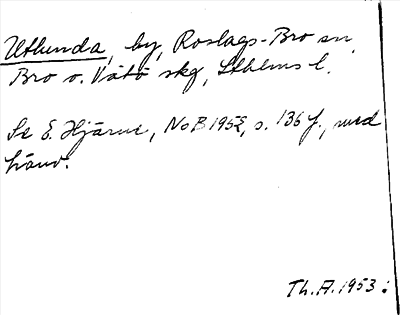 Utlunda, by, Roslags-Bro sn,
Bro o. Vätö skg, Sthlms l.
Se E. Hjärne, NoB 1952, s. 136 f., med
hänv.
Th. A. 1953.